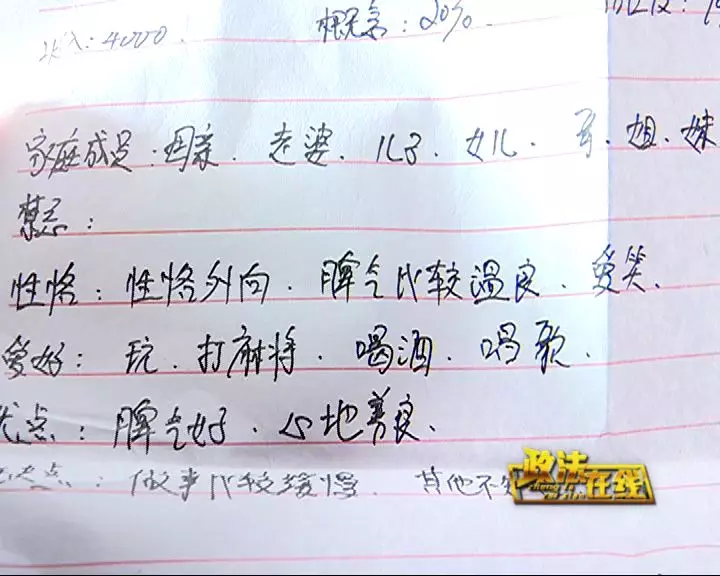 收入:4000. 概念:20%.
家庭成员:母亲、老婆、儿子、女儿、哥、姐、妹
禁忌:
性格:性格外向、脾气比较温良、爱笑.
爱好:玩、打麻将、喝酒、唱歌.
优点:脾气好、心地善良.
缺点:做事比较缓慢、其他不
政法在线